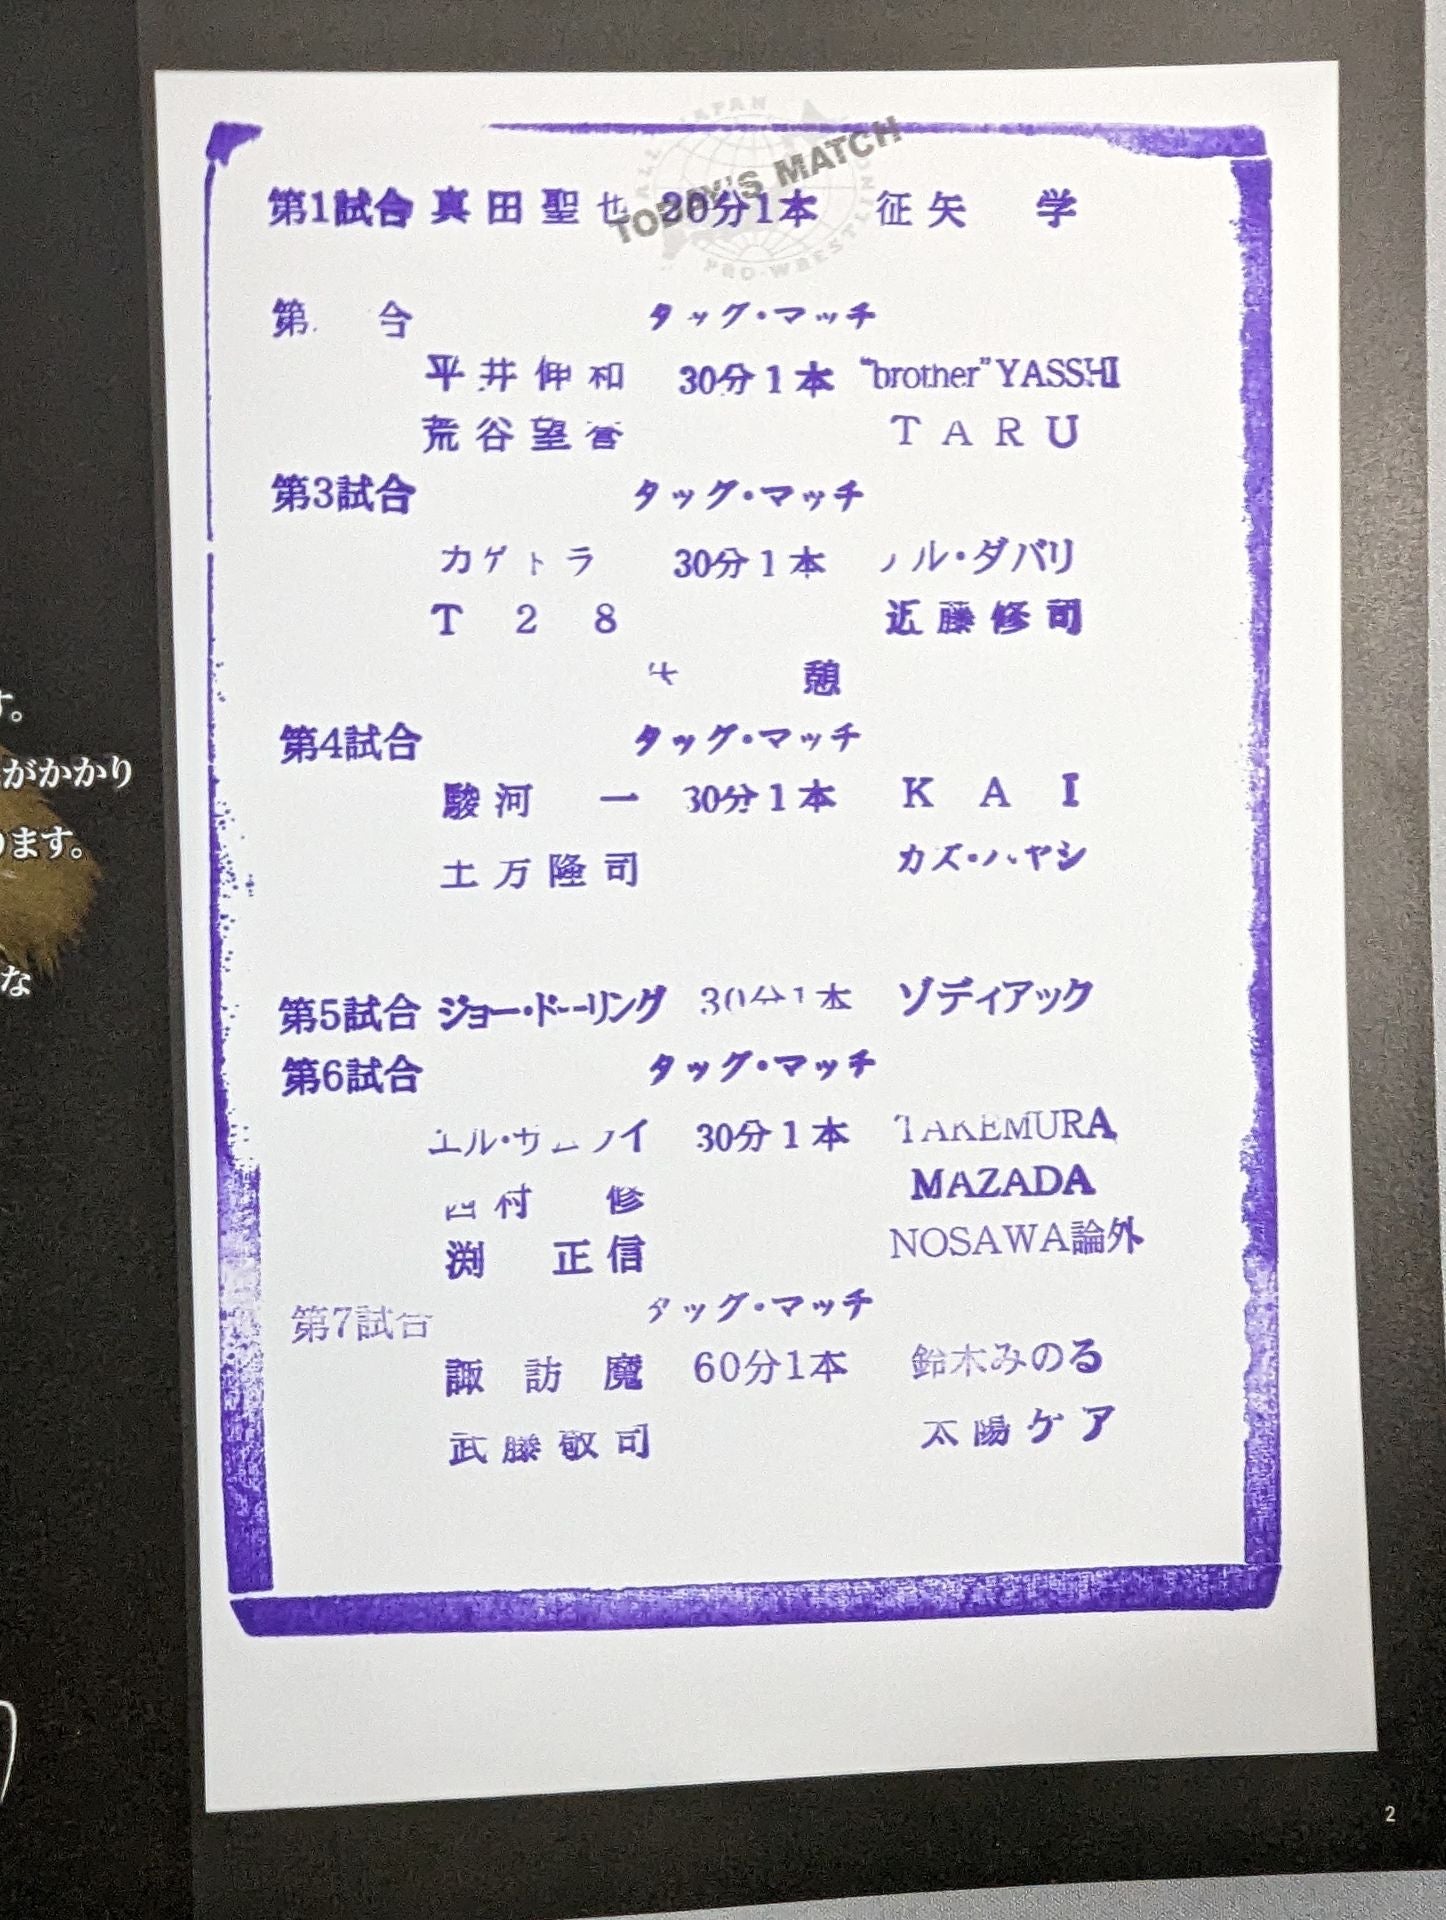 ALL JAPAN PRO-WRESTLING
TODAY'S MATCH
第1試合 真田聖也 20分1本 征矢 学
第 合 タッグ・マッチ
平井伸和 30分1本 "brother"YASSHI
荒谷望誉 TARU
第3試合 タッグ・マッチ
カゲトラ 30分1本 ル・ダバリ
T28 近藤修司
憩
第4試合 タッグ・マッチ
駿河 一 30分1本 KAI
土方隆司 カズ・ハヤシ
第5試合 ジョー・ドーリング 30分1本 ゾディアック
第6試合 タッグ・マッチ
エル・サムライ 30分1本 TAKEMURA
西村 修 MAZADA
渕 正信 NOSAWA論外
第7試合 タッグ・マッチ
諏訪魔 60分1本 鈴木みのる
武藤敬司 太陽ケア
す。
がかかり
ます。
な
2